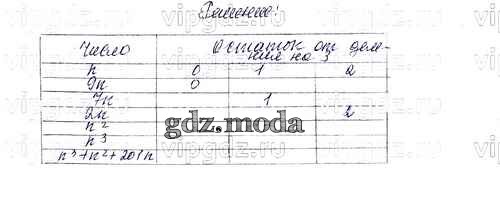 Решение:
Число Остаток от деле-
ния на 3
n 0 1 2
9n 0
7n 1
2n 2
n²
n³
n³+n²+201n
gdz.moda
vipgdz.ru